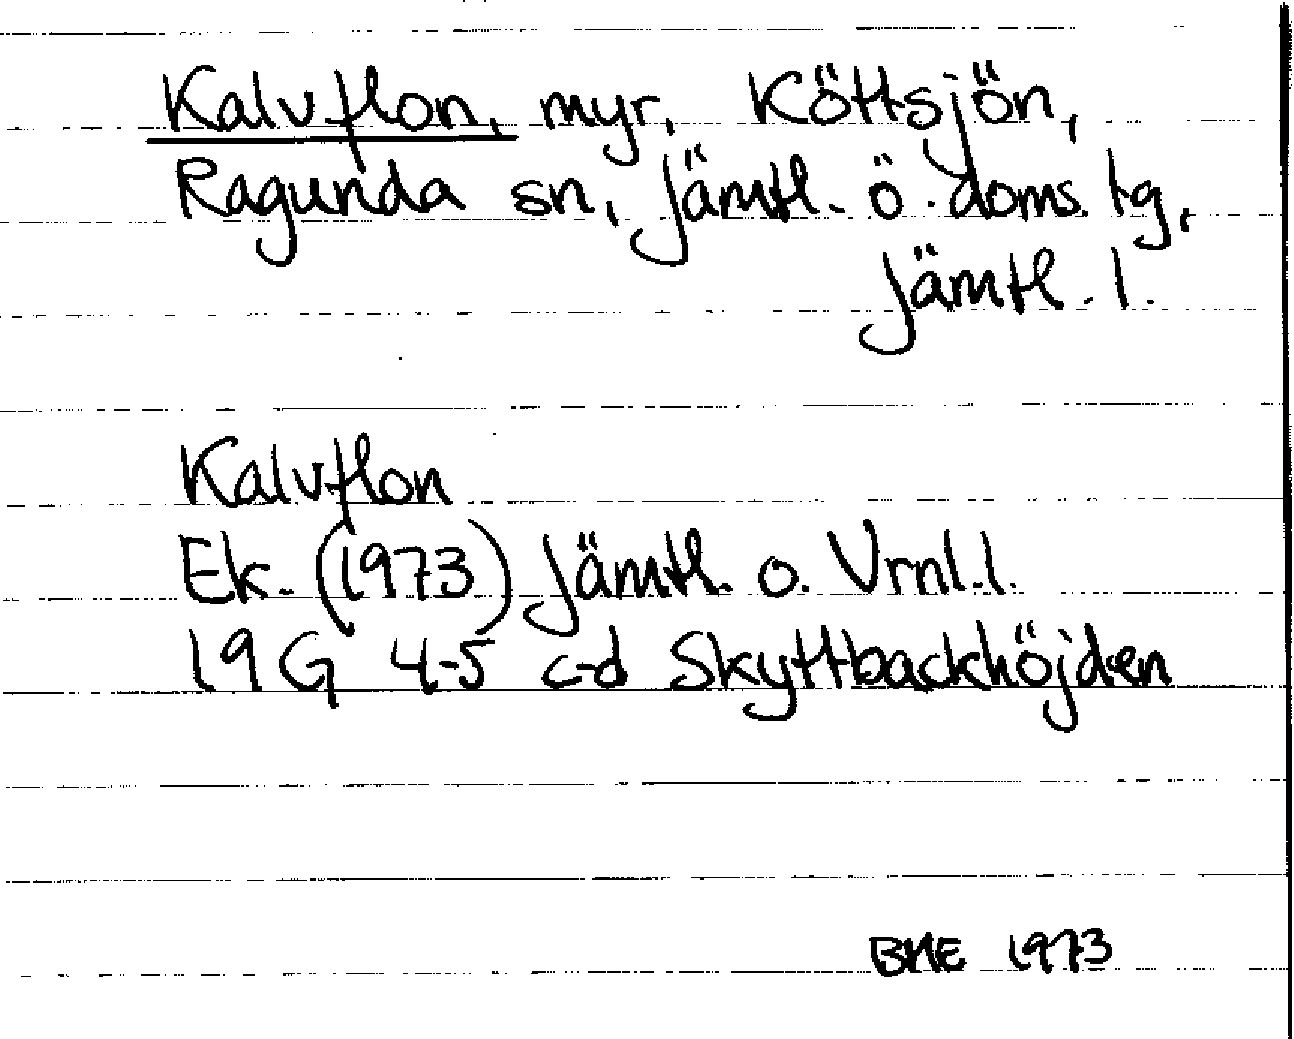 Kalvflon, myr, Köttsjön,
Ragunda sn, Jämtl. ö. doms. tg,
Jämtl. l.
Kalvflon
Ek. (1973) Jämtl. o. Vrnl.l.
19 G 4-5 c-d Skyttbackhöjden
BME 1973